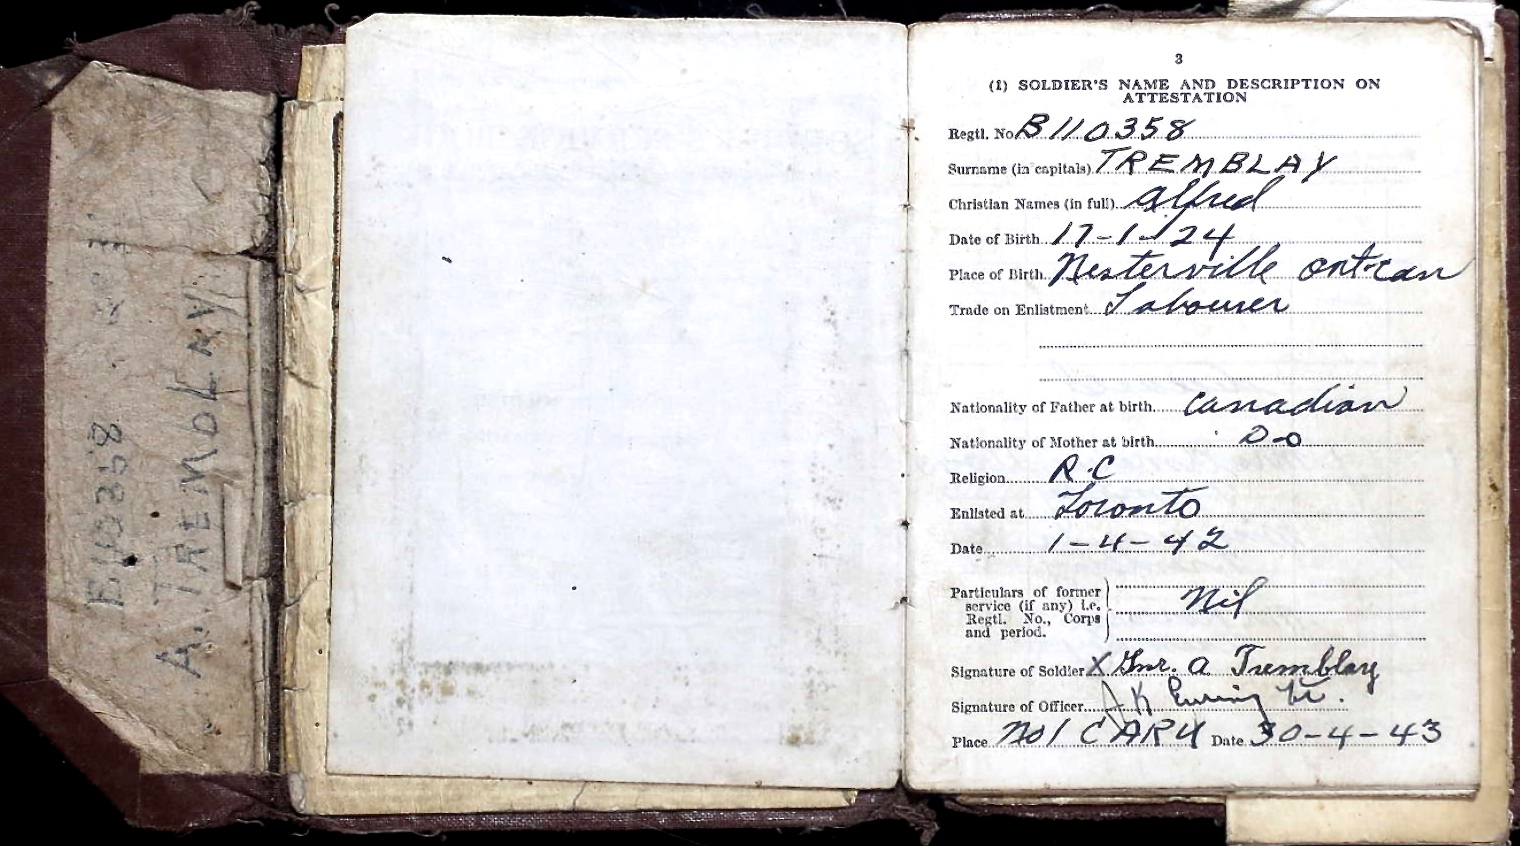 A. TREMBLAY
3
(1) SOLDIER'S NAME AND DESCRIPTION ON
ATTESTATION
Regtl. No. B110358
Surname (in capitals) TREMBLAY
Christian Names (in full) Alfred
Date of Birth 17-1-24
Place of Birth Nesterville Ont-Can
Trade on Enlistment Labourer
Nationality of Father at birth Canadian
Nationality of Mother at birth D-o
Religion R.C
Enlisted at Toronto
Date 1-4-42
Particulars of former
service (if any) i.e. Nil
Regtl. No., Corps
and period.
Signature of Soldier X Gnr. A Tremblay
Signature of Officer J K
Place No 1 CARU Date 30-4-43